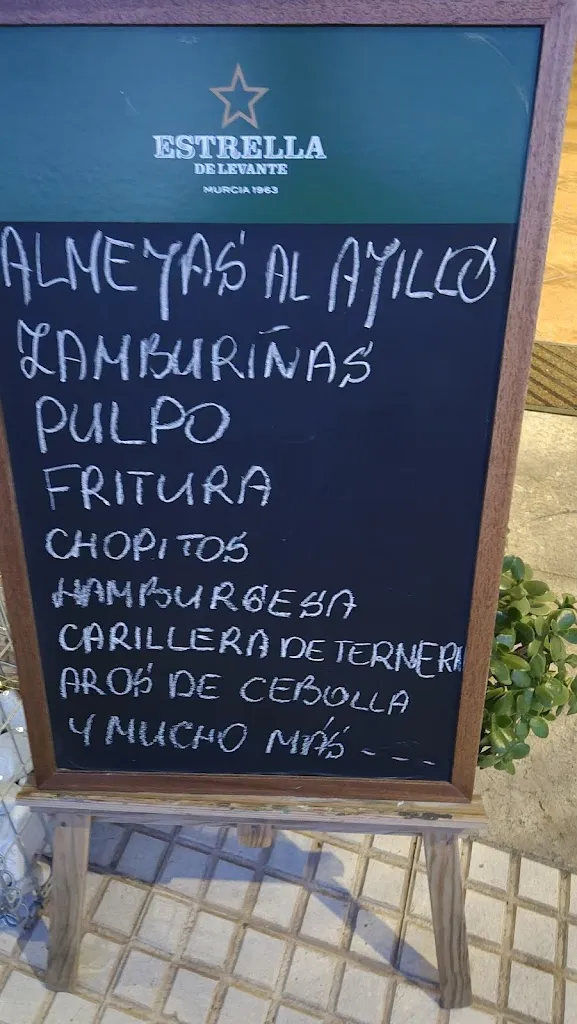 ESTRELLA
DE LEVANTE
MURCIA 1963
ALMEJAS AL AJILLO
ZAMBURIÑAS
PULPO
FRITURA
CHOPITOS
HAMBURGESA
CARILLERA DE TERNERA
AROS DE CEBOLLA
Y MUCHO MÁS - - -